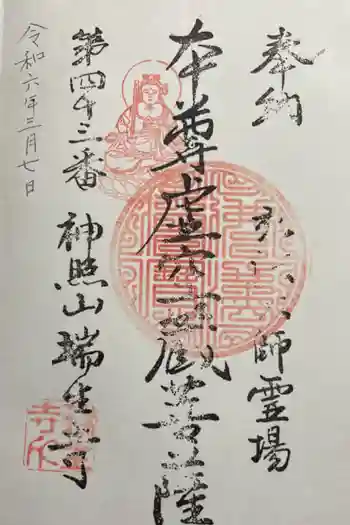 奉納
師霊場
本尊虚空蔵菩薩
第四十三番
神照山瑞生寺
令和六年三月七日